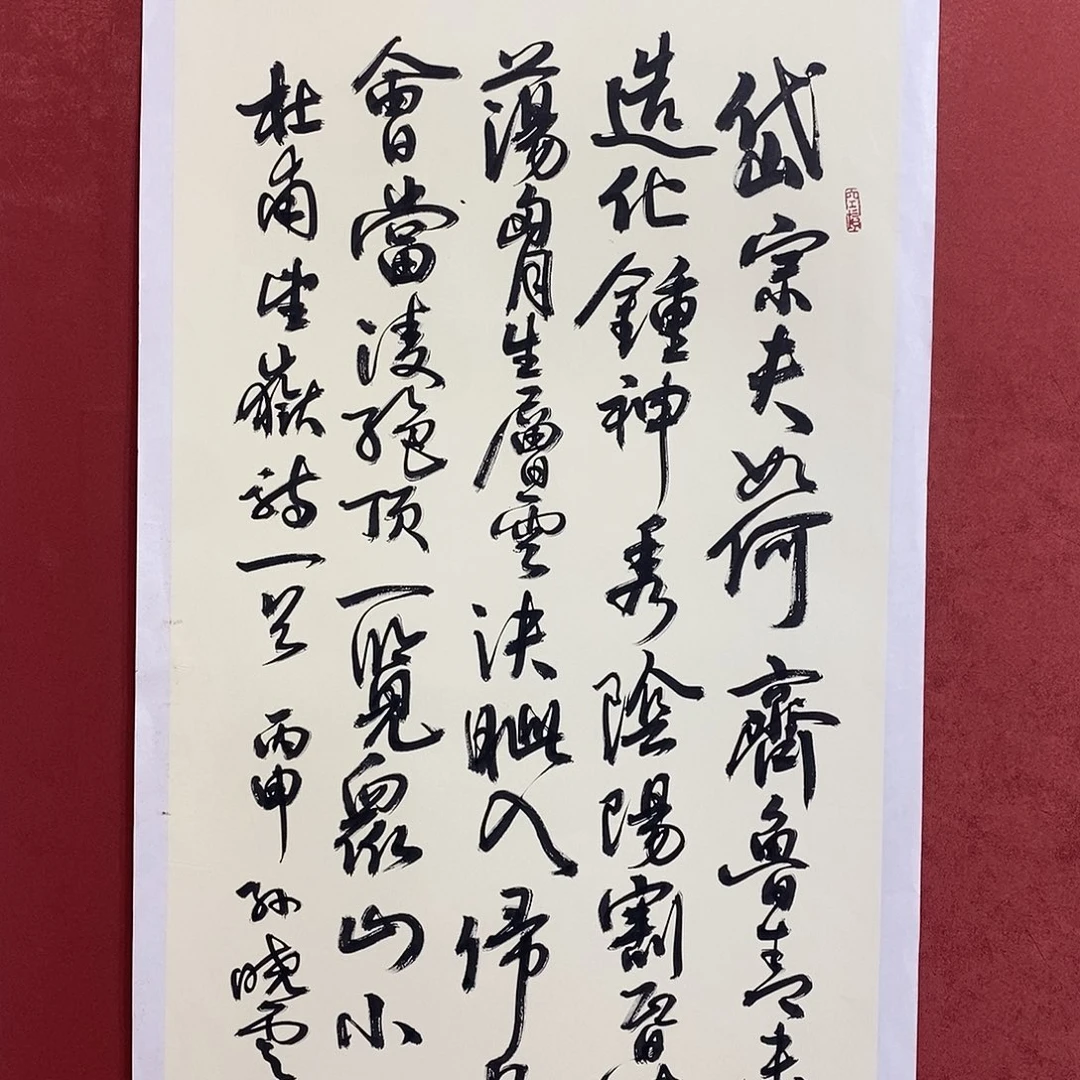 岱宗夫如何齊魯青未
造化鍾神秀陰陽割昬
蕩胷生層雲決眦入帰
會當淩絕頂一覽眾山小
杜甫望嶽詩一首 丙申 孫曉雲